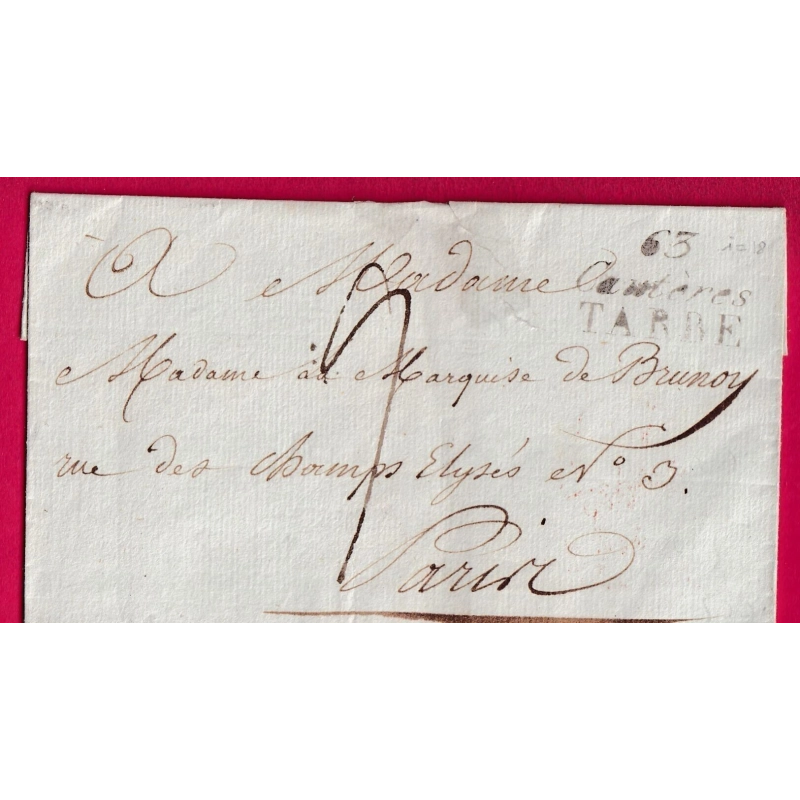 63
Cauterès
TARBE
A Madame
Madame la Marquise de Brunoy
rue des Champs Elysés No 3.
Paris